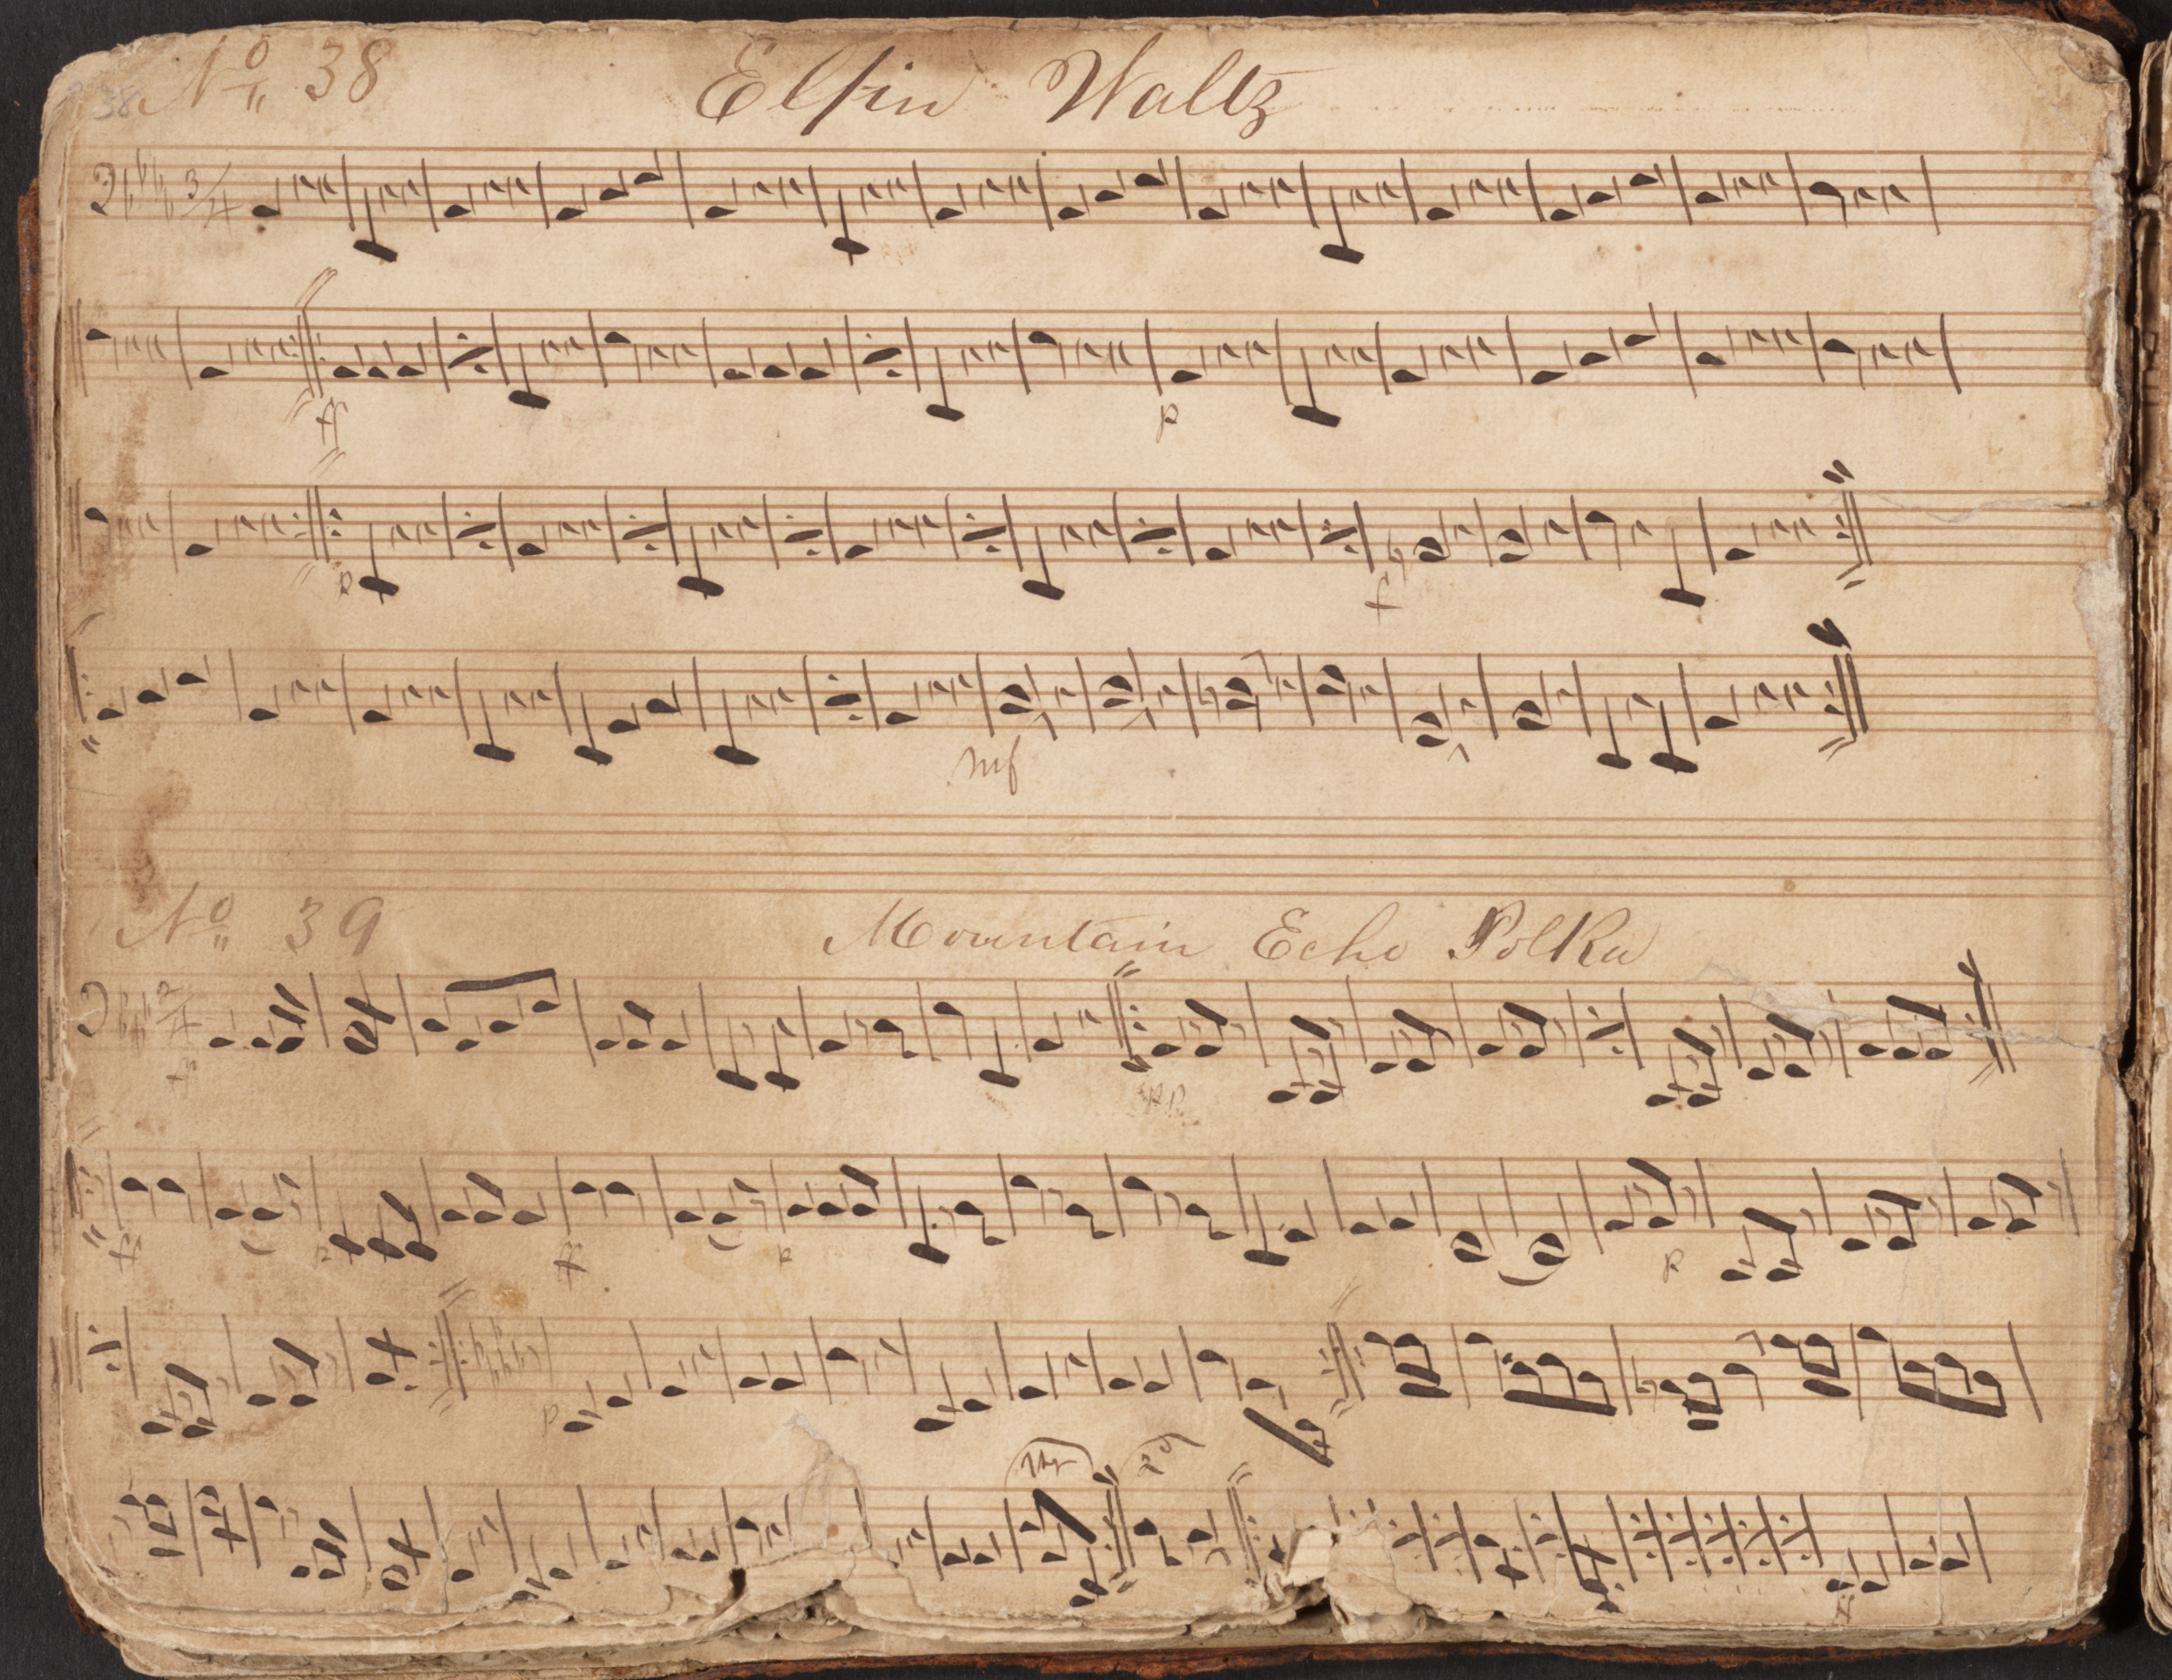 38 No 38 Elfin Waltz
3/4
ff p
p f
mf
No 39 Mountain Echo Polka
2/4
pp
f p f p p
p
1st 2d